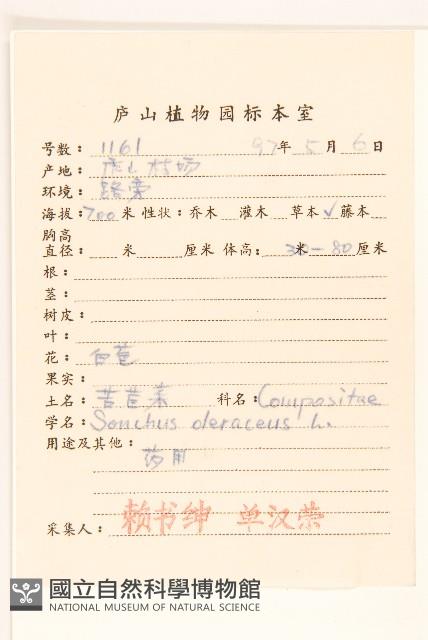 庐山植物园标本室
号数: 1161 97年5月6日
产地: 庐山林场
环境: 路旁
海拔: 700米 性状: 乔木 灌木 草本√藤本
胸高
直径: 米 厘米 体高: 米 30—80厘米
根:
茎:
树皮:
叶:
花: 白色
果实:
土名: 苦苣菜 科名: Compositae
学名: Sonchus oleraceus L.
用途及其他:
药用
采集人: 赖书绅 单汉荣
國立自然科學博物館
NATIONAL MUSEUM OF NATURAL SCIENCE